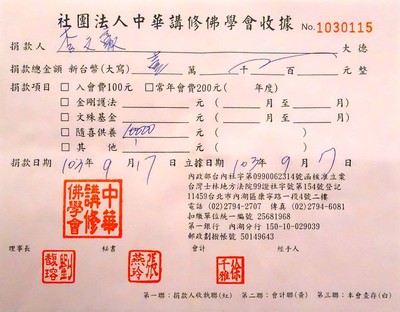 社團法人中華講修佛學會收據 No.1030115
捐款人 李文嚴 大德
捐款總金額 新台幣(大寫) 壹 萬 千 百 元整
捐款項目 □ 入會費100元 □ 常年會費200元( 年度)
□ 金剛護法 元( 月至 月)
□ 文殊基金 元( 月至 月)
□ 隨喜供養 10000 元
□ 其 他 元
捐款日期 103年 9月 17日 立據日期 103年 9月 7日
內政部台內社字第0990062314號函核准立案
台灣士林地方法院99證社字號第154號登記
11459台北市內湖區康寧路一段4號二樓
電話 (02)2794-2707 傳真 (02)2794-6081
扣繳單位統一編號 25681968
第一銀行 內湖分行 150-10-029039
郵政劃撥帳號 50149643
中華
講修
佛學會
理事長 秘書 會計 經手人
劉馥瑢
張燕玲
徐千雅
第一聯：捐款人收執聯(紅) 第二聯：會計聯(黃) 第三聯：本會查存(白)